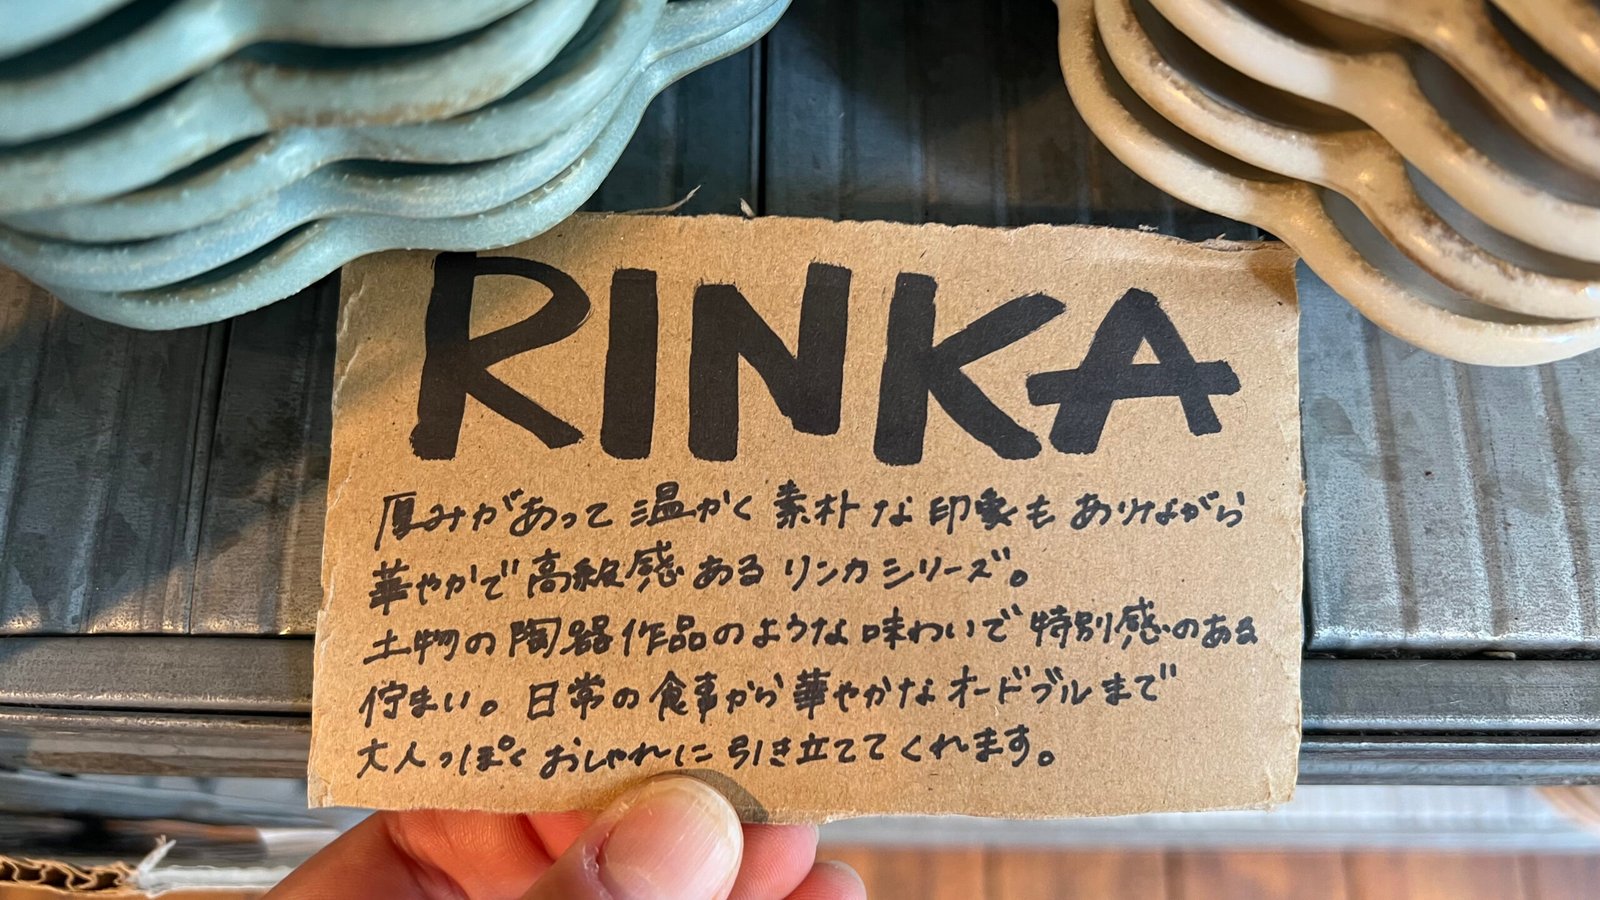 RINKA
厚みがあって温かく素朴な印象もありながら
華やかで高級感あるリンカシリーズ。
土物の陶器作品のような味わいで特別感のある
佇まい。日常の食事から華やかなオードブルまで
大人っぽくおしゃれに引き立ててくれます。